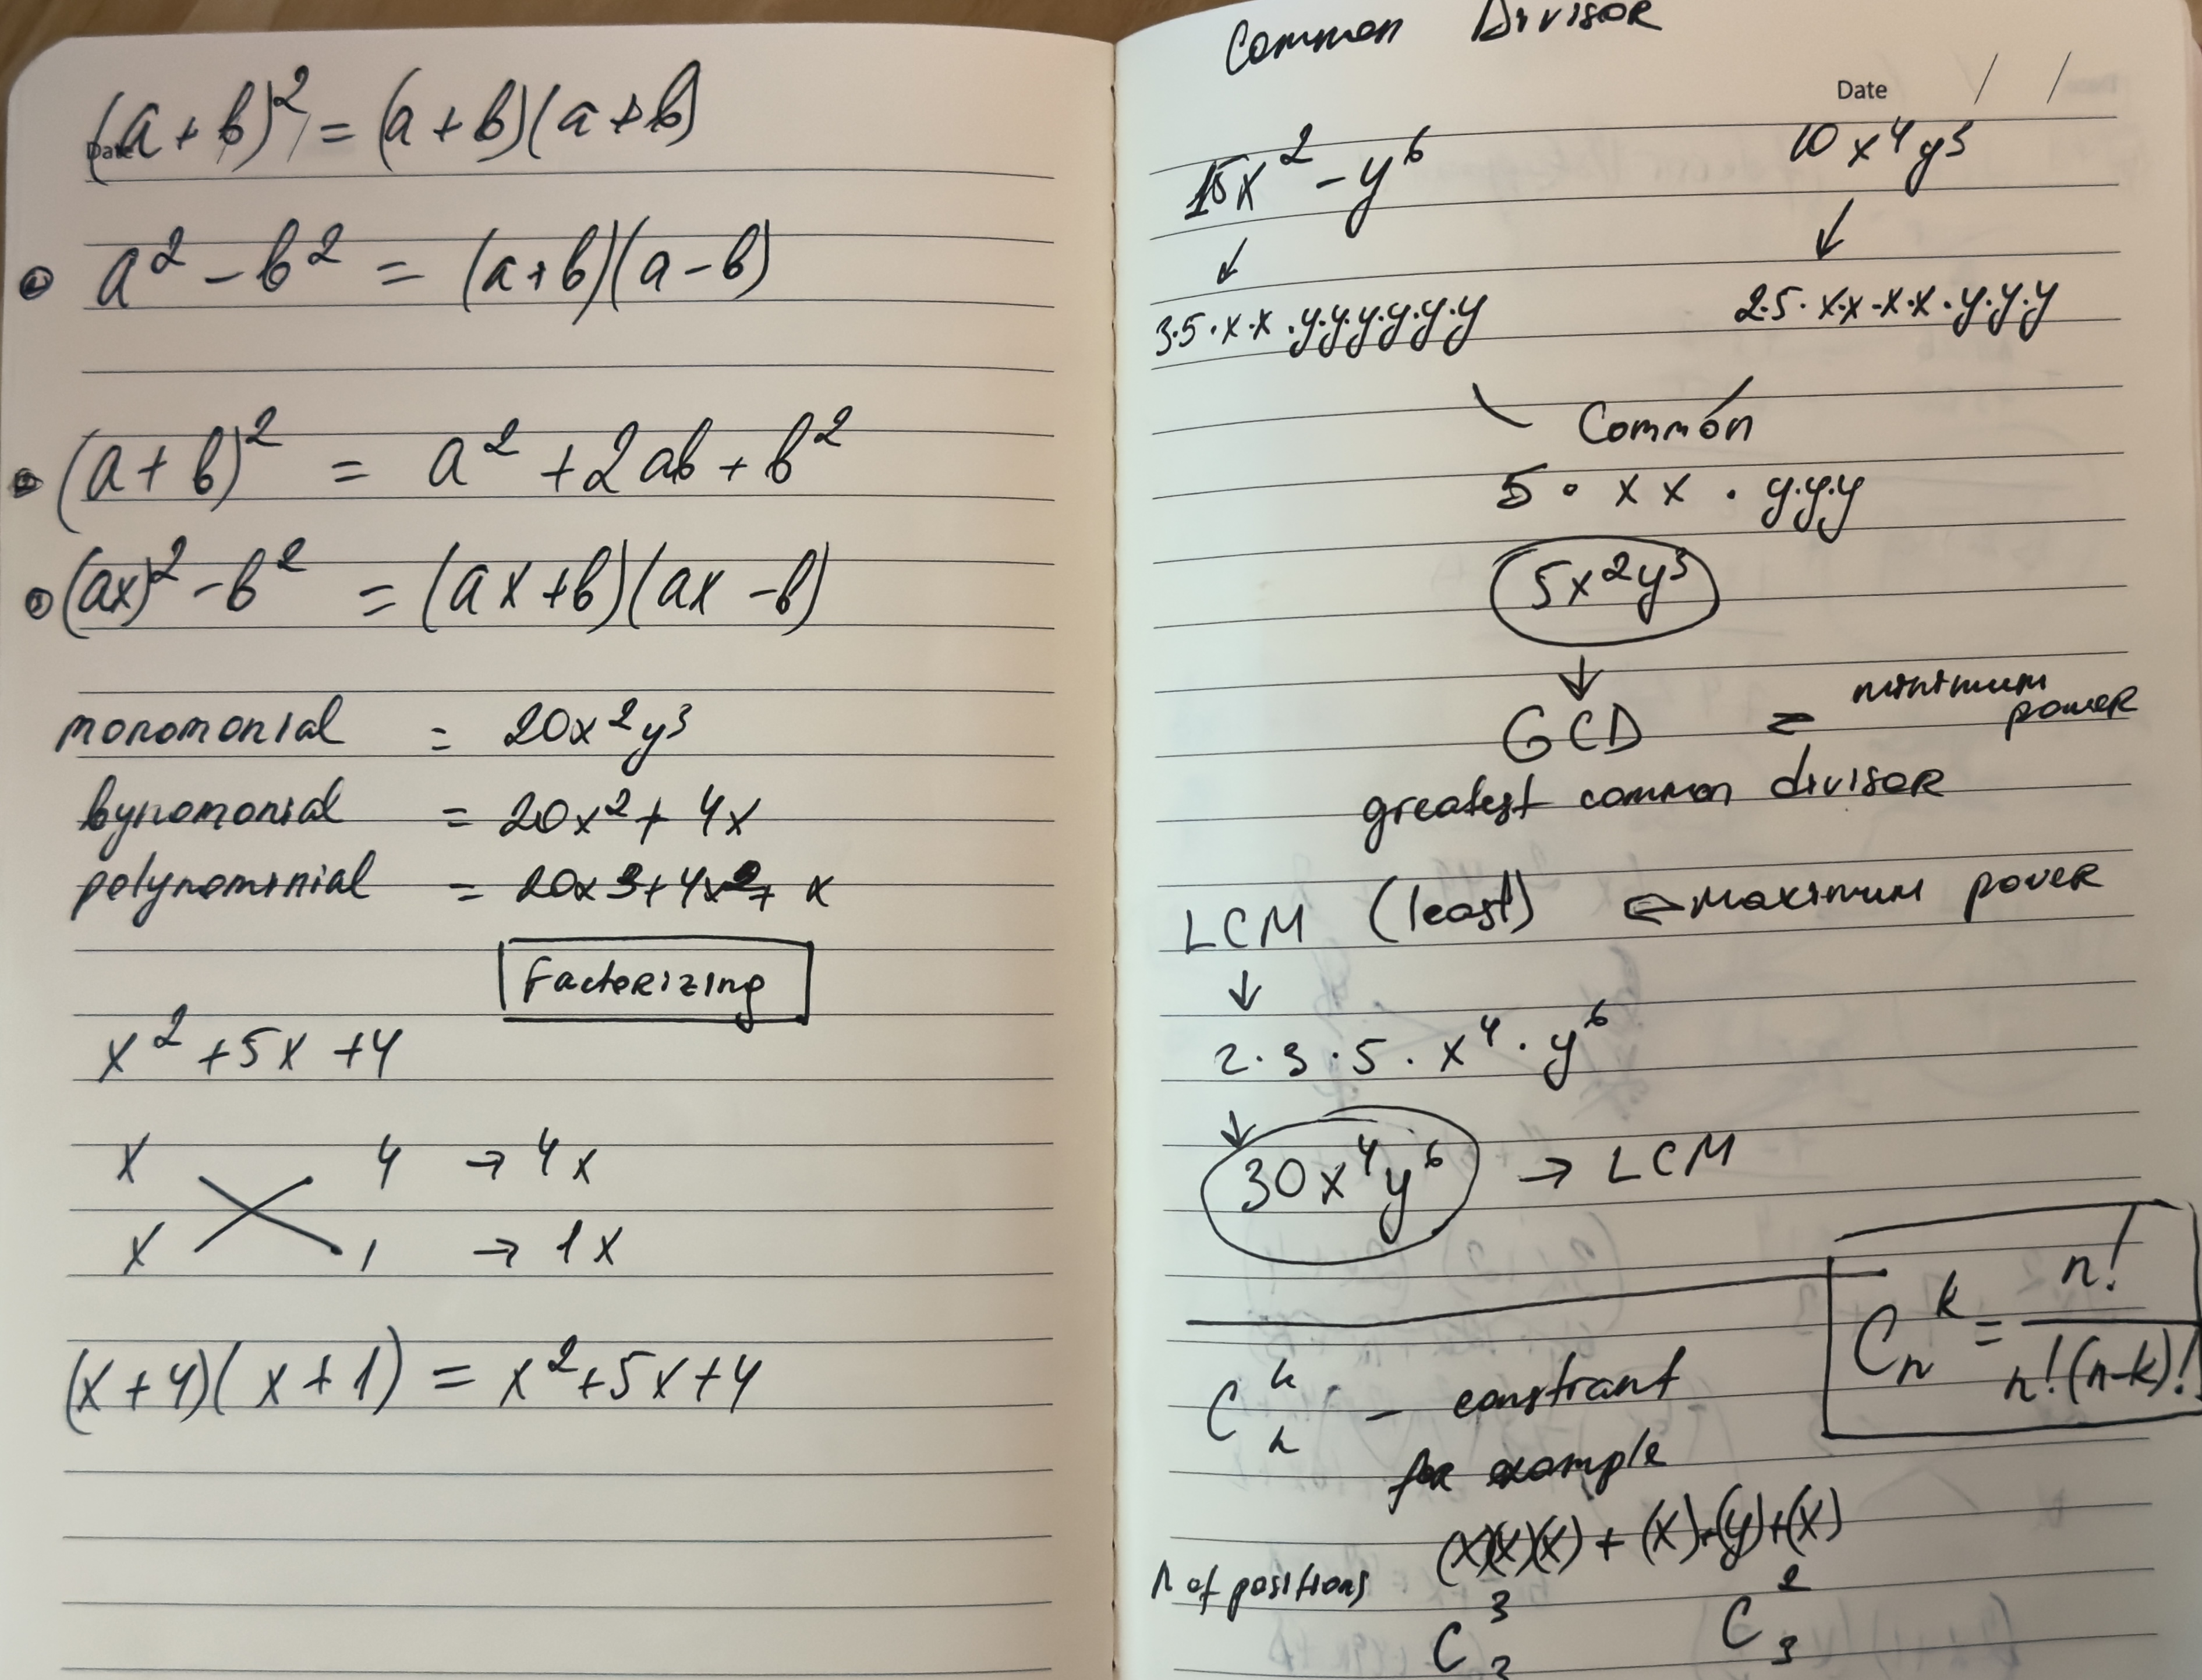 (a+b)² = (a+b)(a+b)
Date
a² - b² = (a+b)(a-b)
(a+b)² = a² + 2ab + b²
(ax)² - b² = (ax+b)(ax-b)
monomonial = 20x²y³
bynomonial = 20x² + 4x
polynominial = 20x3+4x2+ x
Factorizing
x² + 5x + 4
x 4 → 4x
x 1 → 1x
(x+4)(x+1) = x²+5x+4
Common Divisor
Date / /
15x² - y⁶ 10x⁴y³
↓ ↓
3·5·x·x·y·y·y·y·y·y 2·5·x·x·x·x·y·y·y
Common
5·xx·y·y·y
5x²y³
↓
GCD = minimum power
greatest common divisor
LCM (least) ⇐ maximum power
↓
2·3·5·x⁴·y⁶
↓
30x⁴y⁶ → LCM
Cₙᵏ = n! / n!(n-k)!
constrant
for example
(x)(x)(x) + (x)+(y)+(x)
n of positions
C₃³ C₃²